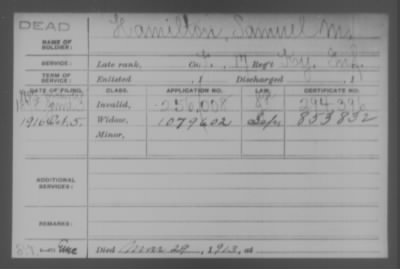 DEAD
NAME OF SOLDIER: Hamilton, Samuel M.
SERVICE: Late rank, Co. F, 17 Reg't Ky. Inf.
TERM OF SERVICE: Enlisted , 1 Discharged , 1
DATE OF FILING. CLASS. APPLICATION NO. LAW. CERTIFICATE NO.
Invalid, 256,008 294,396
1916 Oct. 5. Widow, 1079602 853832
Minor,
ADDITIONAL SERVICES:
REMARKS:
Died Mar 29, 1913, at